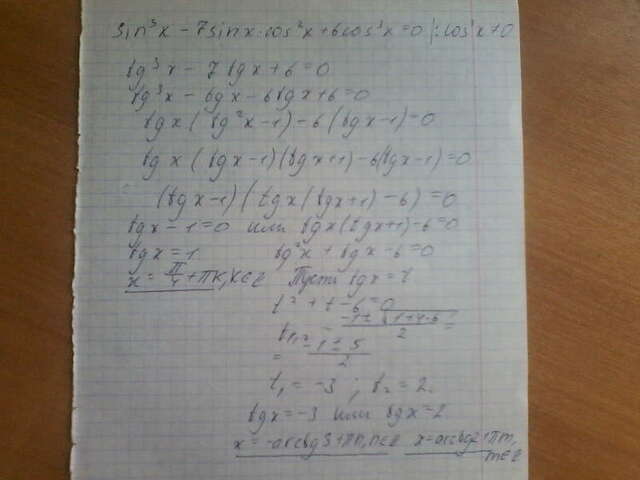 sin³x - 7sinx·cos²x + 6cos³x = 0 |: cos³x ≠ 0
tg³x - 7tgx + 6 = 0
tg³x - tgx - 6tgx + 6 = 0
tgx(tg²x - 1) - 6(tgx - 1) = 0
tgx(tgx - 1)(tgx + 1) - 6(tgx - 1) = 0
(tgx - 1)(tgx(tgx + 1) - 6) = 0
tgx - 1 = 0 или tgx(tgx + 1) - 6 = 0
tgx = 1 tg²x + tgx - 6 = 0
x = π/4 + πk, k∈Z Пусть tgx = t
t² + t - 6 = 0
t₁,₂ = (-1 ± √(1+4·6))/2 =
= (-1 ± 5)/2
t₁ = -3 ; t₂ = 2.
tgx = -3 или tgx = 2
x = -arctg3 + πn, n∈Z x = arctg2 + πm,
m∈Z